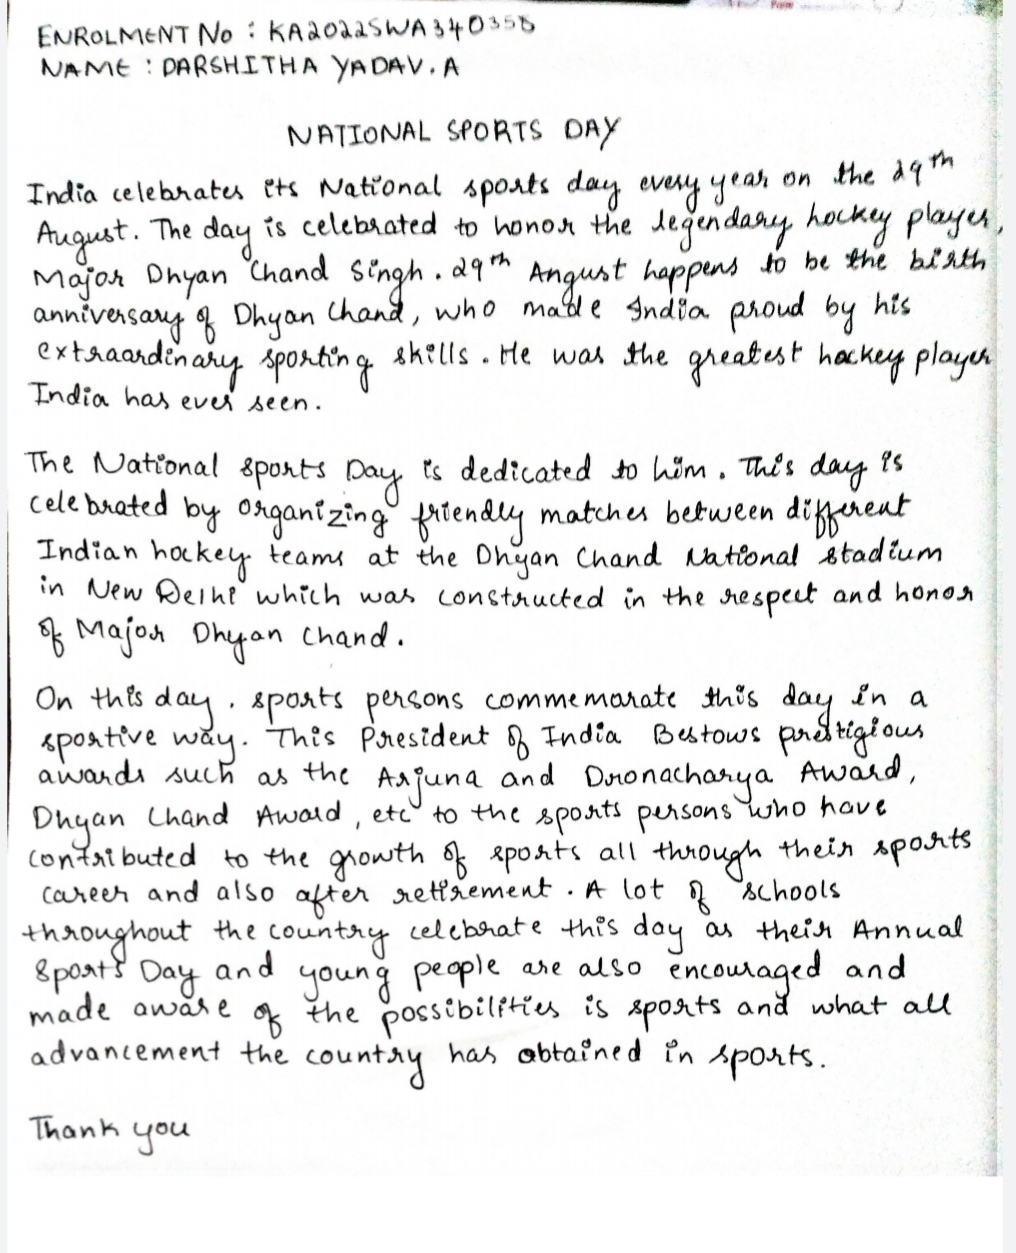 ENROLMENT No : KA2022SWA340358
NAME : DARSHITHA YADAV. A
NATIONAL SPORTS DAY
India celebrates its National sports day every year on the 29th
August. The day is celebrated to honor the legendary hockey player,
Major Dhyan Chand Singh. 29th Angust happens to be the birth
anniversary of Dhyan Chand, who made India proud by his
extraardinary sporting skills. He was the greatest hockey player
India has ever seen.
The National sports Day is dedicated to him. This day is
celebrated by organizing friendly matches between different
Indian hockey teams at the Dhyan Chand National stadium
in New Delhi which was constructed in the respect and honor
of Major Dhyan Chand.
On this day. sports persons commemorate this day in a
sportive way. This President of India Bestows prestigious
awards such as the Arjuna and Dronacharya Award,
Dhyan Chand Award, etc to the sports persons who have
contributed to the growth of sports all through their sports
career and also after retirement. A lot of schools
throughout the country celebrate this day as their Annual
Sports Day and young people are also encouraged and
made aware of the possibilities is sports and what all
advancement the country has obtained in sports.
Thank you